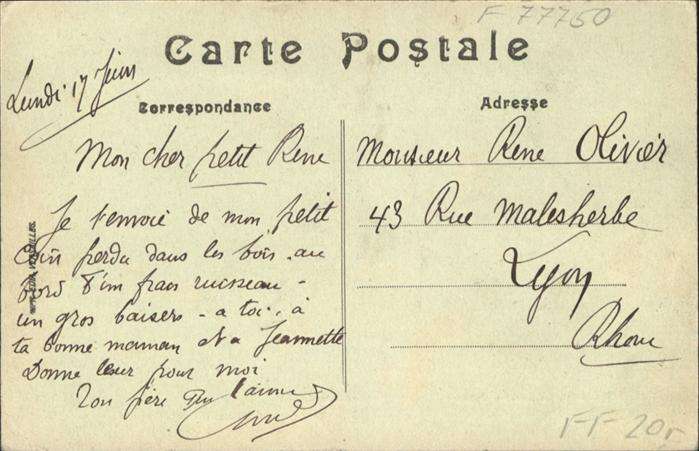 F 77750
Carte Postale
Lundi 17 Juin
Correspondance
Adresse
Mon cher petit Rene
Je t'envoie de mon petit
Coin perdu dans les bois au
bord d'un frais ruisseau -
un gros baisers - a toi, à
ta bonne maman et a Jeannette
Donne leur pour moi
Ton père qui t'aime
Monsieur Rene Olivier
43 Rue Malesherbe
Lyon
Rhone
FF 20